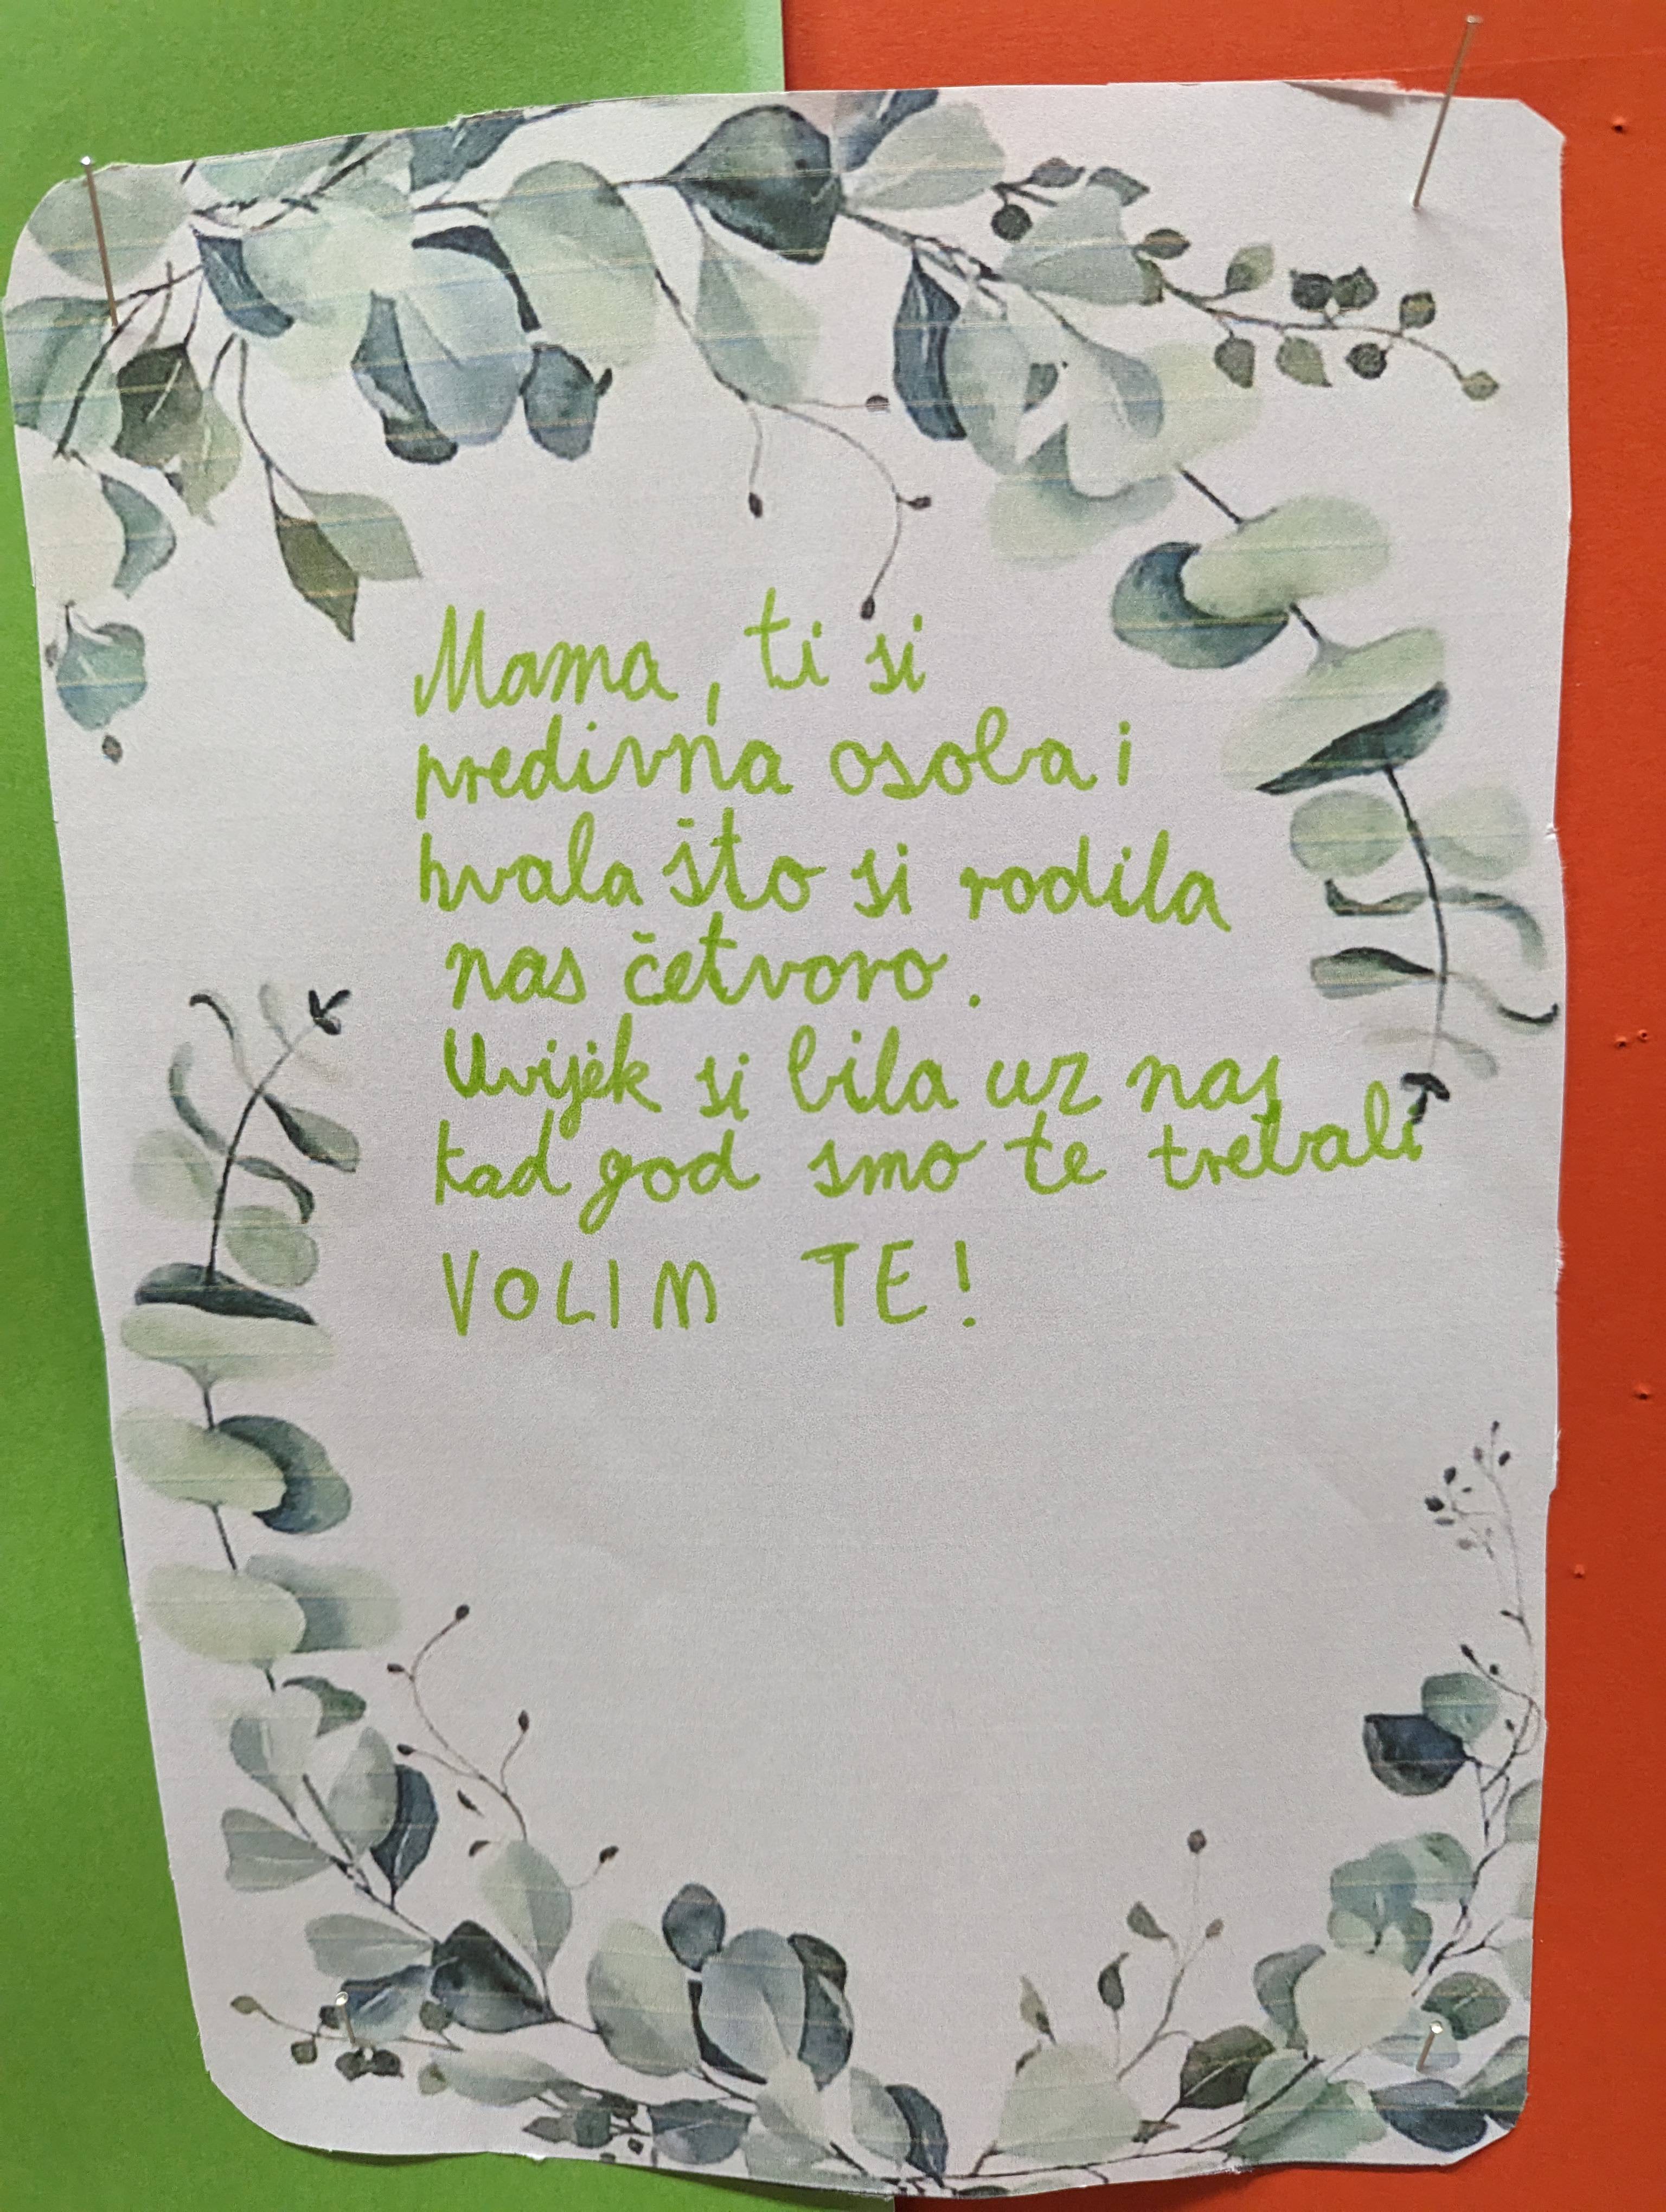 Mama, ti si
predivna osoba i
hvala što si rodila
nas četvoro.
Uvijek si bila uz nas
kad god smo te trebali
VOLIM TE!